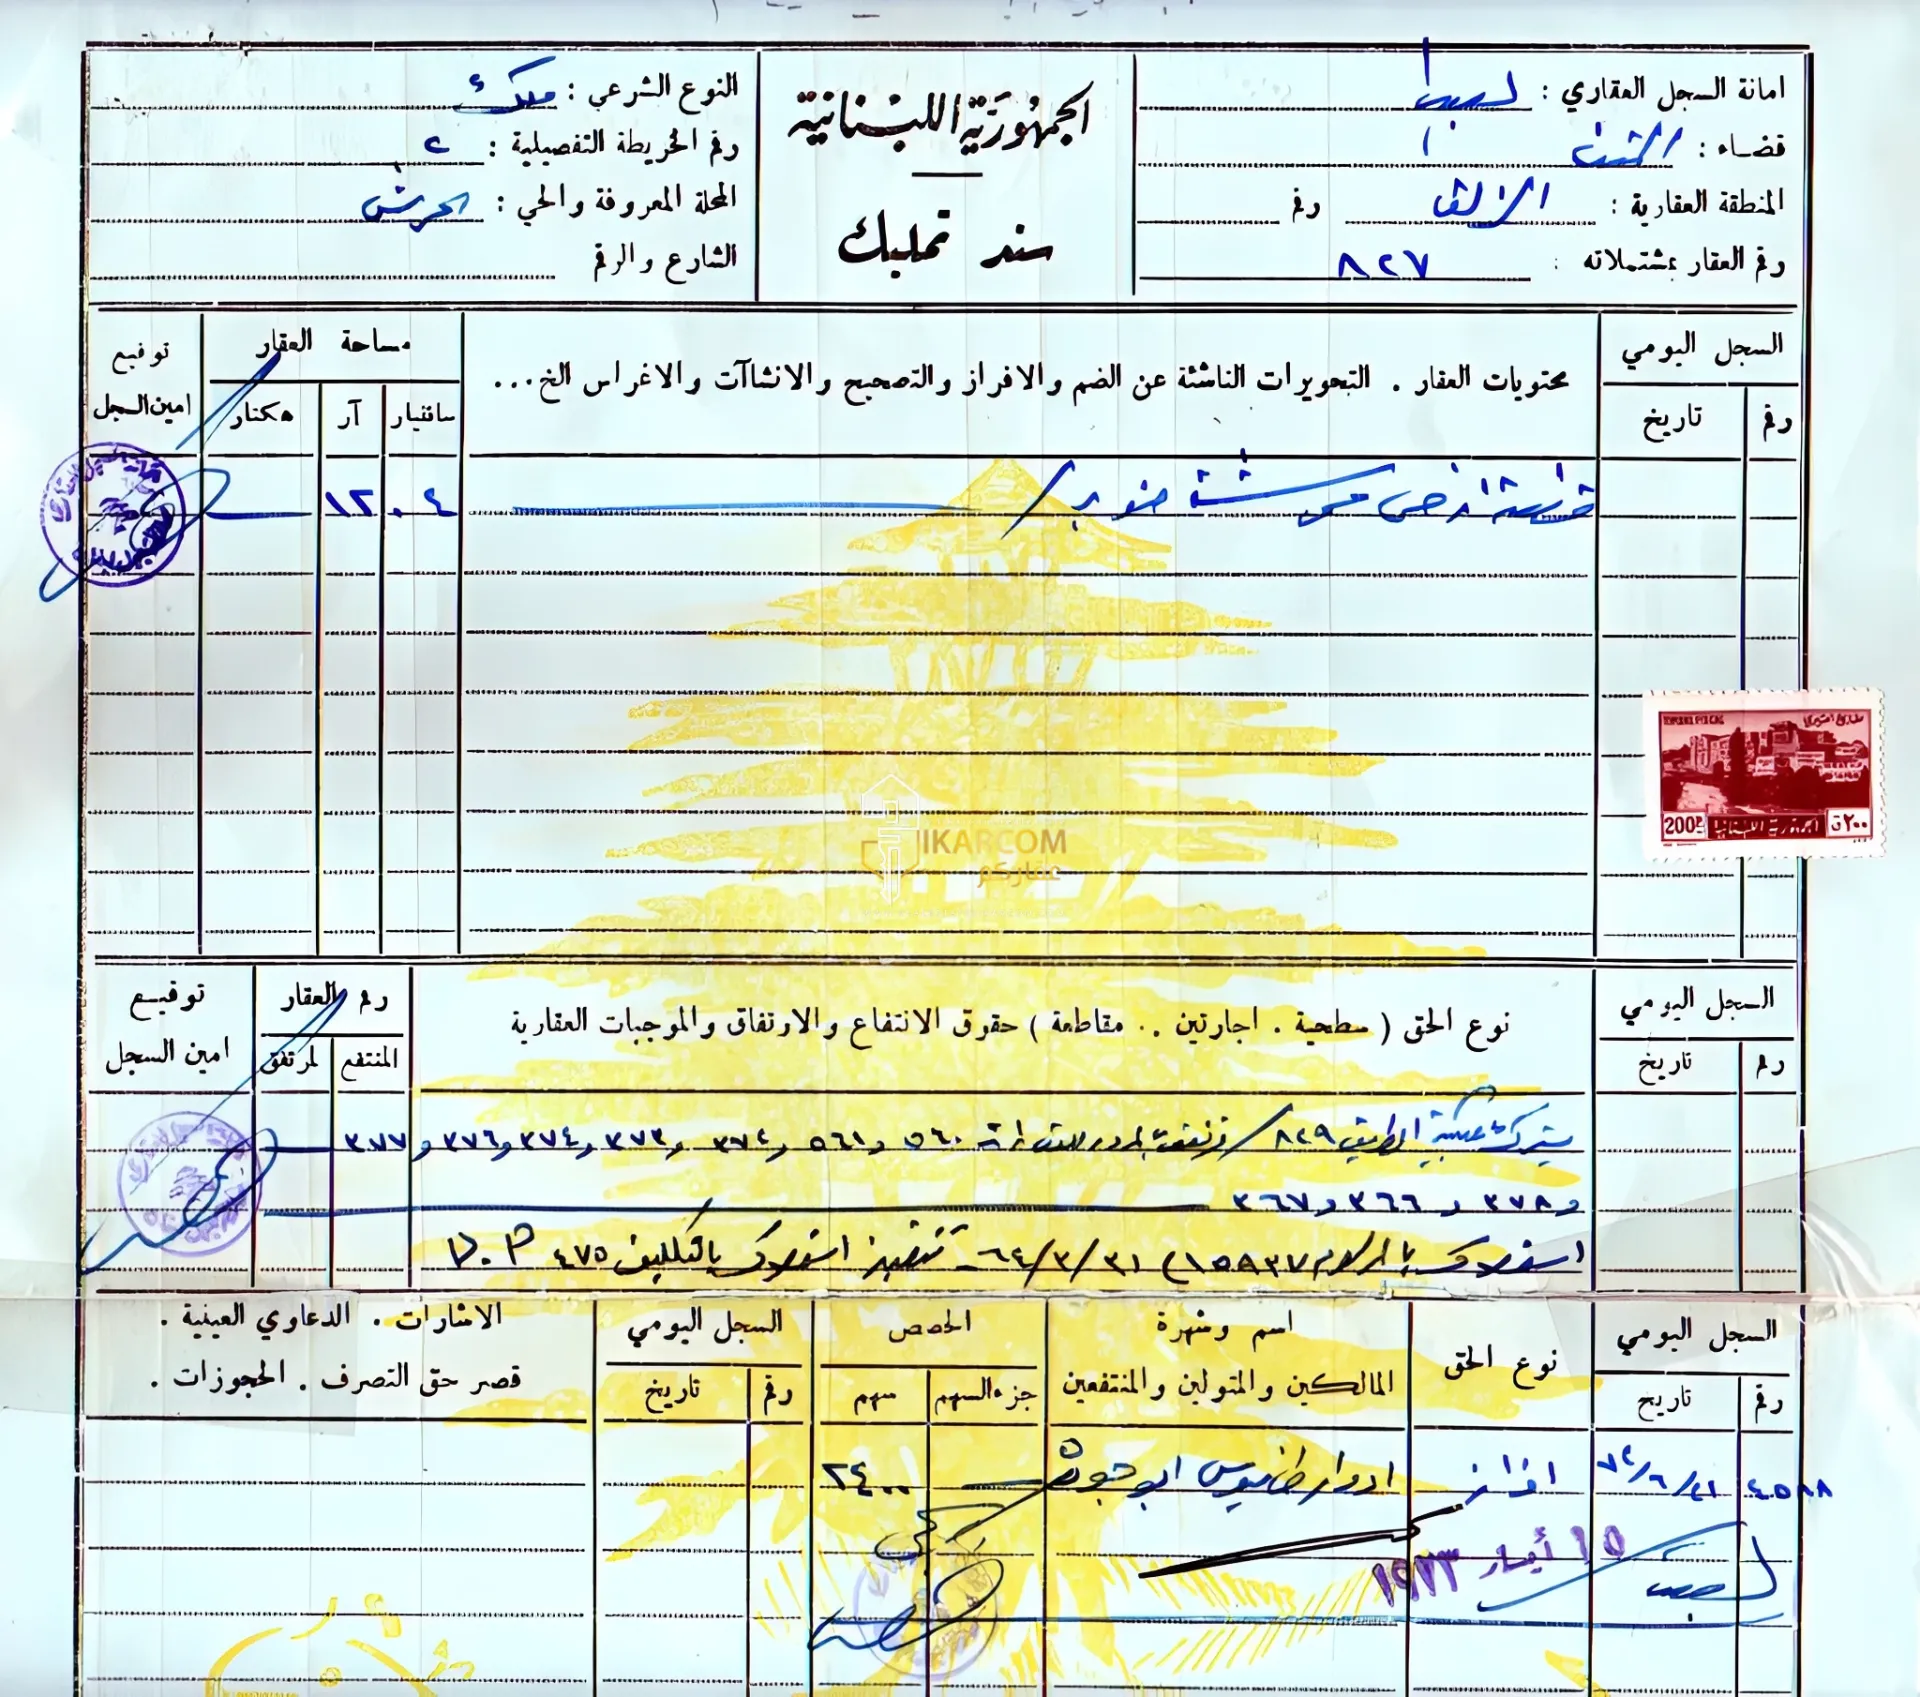 امانة السجل العقاري : بعبدا
قضاء : المتن
المنطقة العقارية : الزلقا رقم
رقم العقار بمشتملاته : ٨٢٧
الجمهورية اللبنانية
سند تمليك
النوع الشرعي : ملك
رقم الخريطة التفصيلية : ٢
المحلة المعروفة والحي : الحرش
الشارع والرقم
السجل اليومي
رقم تاريخ
محتويات العقار . التحويرات الناشئة عن الضم والافراز والتصحيح والانشاآت والاغراس الخ...
مساحة العقار
سانتيار آر هكتار
توقيع
امين السجل
قطعة ارض
٤٠ ١٢
200P ٢٠٠ق الجمهورية اللبنانية
IKARCOM
عقاركم
السجل اليومي
رقم تاريخ
نوع الحق ( سطحية . اجارتين . مقاطعة ) حقوق الانتفاع والارتفاق والموجبات العقارية
رقم العقار
المنتفع المرتفق
توقيع
امين السجل
يشترك بملكية الطريق ٨٢٩ / مرتفق بالمرور للعقارات ٥٦٠ و ٥٦١ و ٣٧٤ و ٣٧٣ و ٣٧٤ و ٣٧٦ و ٣٧٧
و ٣٧٨ و ٣٦٦ و ٣٦٧
استملاك بالمرسوم ١٥٨٣٧ ) ٣١ / ٣ / ٦٤ - تنفيذ استملاك بالتكليف ٤٧٥
السجل اليومي
رقم تاريخ
نوع الحق
اسم وشهرة
المالكين والمتولين والمنتفعين
الحصص
جزء السهم سهم
السجل اليومي
رقم تاريخ
الاشارات . الدعاوي العينية .
قصر حق التصرف . الحجوزات .
افراز ادوار طانيوس ابو جوده ٢٤٠٠
١٥ أيار ١٩٧٣
بعبدا